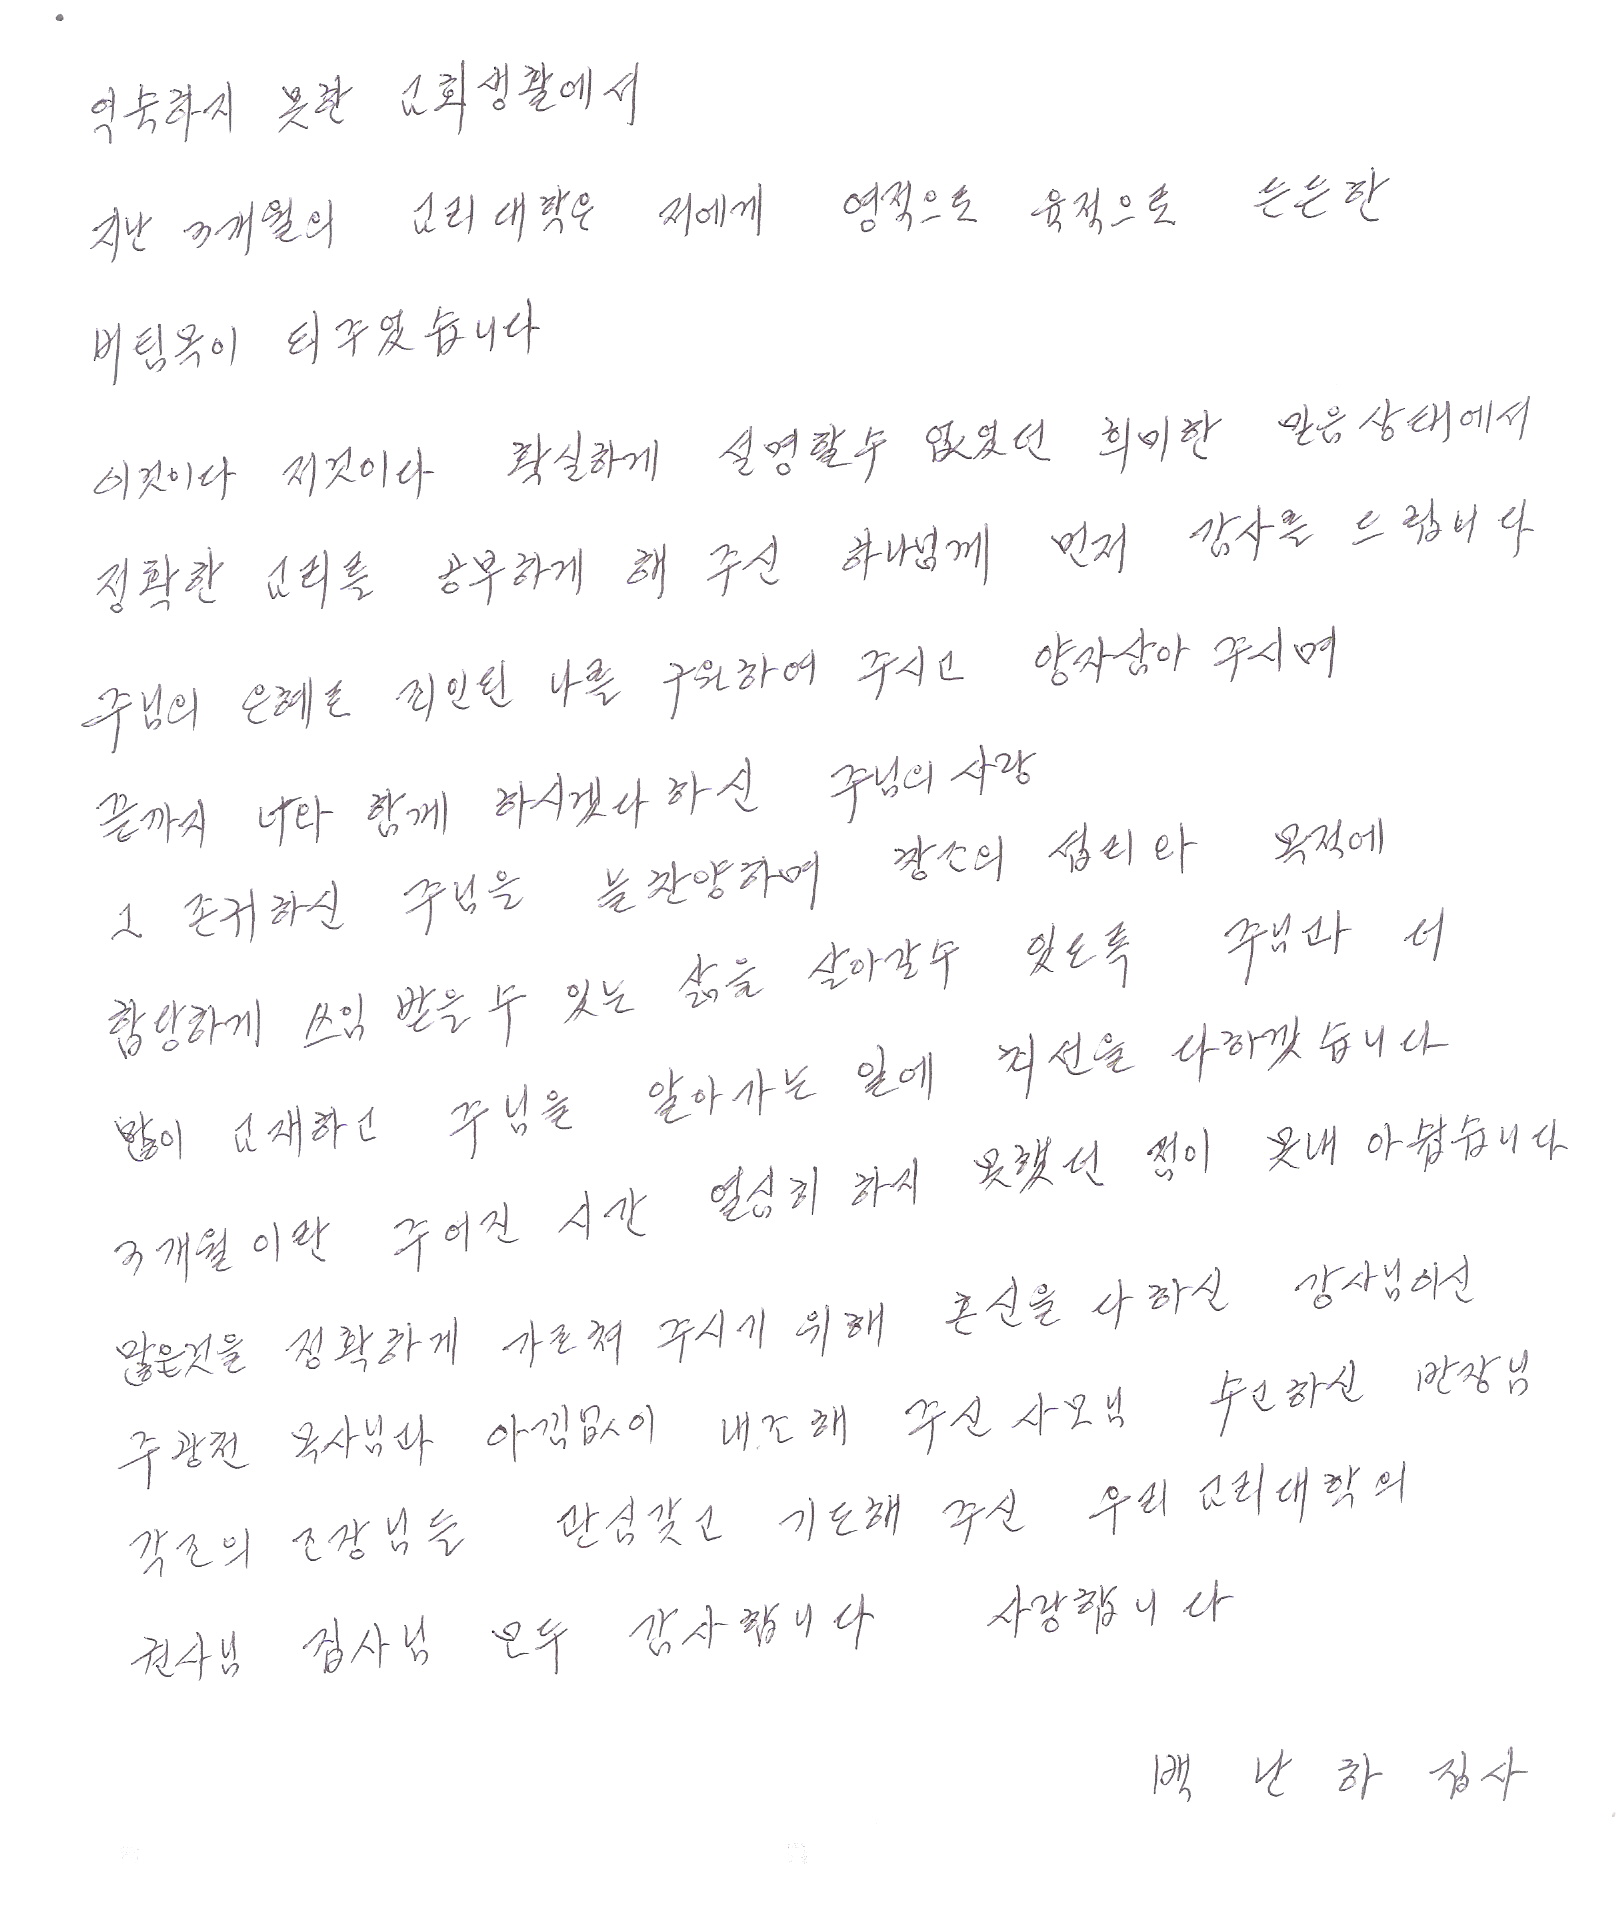 익숙하지 못한 교회생활에서
지난 3개월의 교리대학은 저에게 영적으로 육적으로 든든한
버팀목이 되주었습니다
이것이다 저것이다 확실하게 설명할수 없었던 희미한 믿음상태에서
정확한 교리를 공부하게 해 주신 하나님께 먼저 감사를 드립니다
주님의 은혜로 죄인된 나를 구원하여 주시고 양자삼아 주시며
끝까지 너와 함께 하시겠다하신 주님의 사랑
그 존귀하신 주님을 늘찬양하며 창조의 섭리와 목적에
합당하게 쓰임 받을 수 있는 삶을 살아갈수 있도록 주님과 더
많이 교재하고 주님을 알아가는 일에 최선을 다하겠습니다
3개월이란 주어진 시간 열심히 하지 못했던 점이 못내 아쉽습니다
많은것을 정확하게 가르쳐 주시기 위해 혼신을 다하신 강사님이신
주광전 목사님과 아낌없이 내조해 주신 사모님 수고하신 반장님
각조의 조장님들 관심갖고 기도해 주신 우리 교리대학의
권사님 집사님 모두 감사합니다 사랑합니다
백 난 하 집사